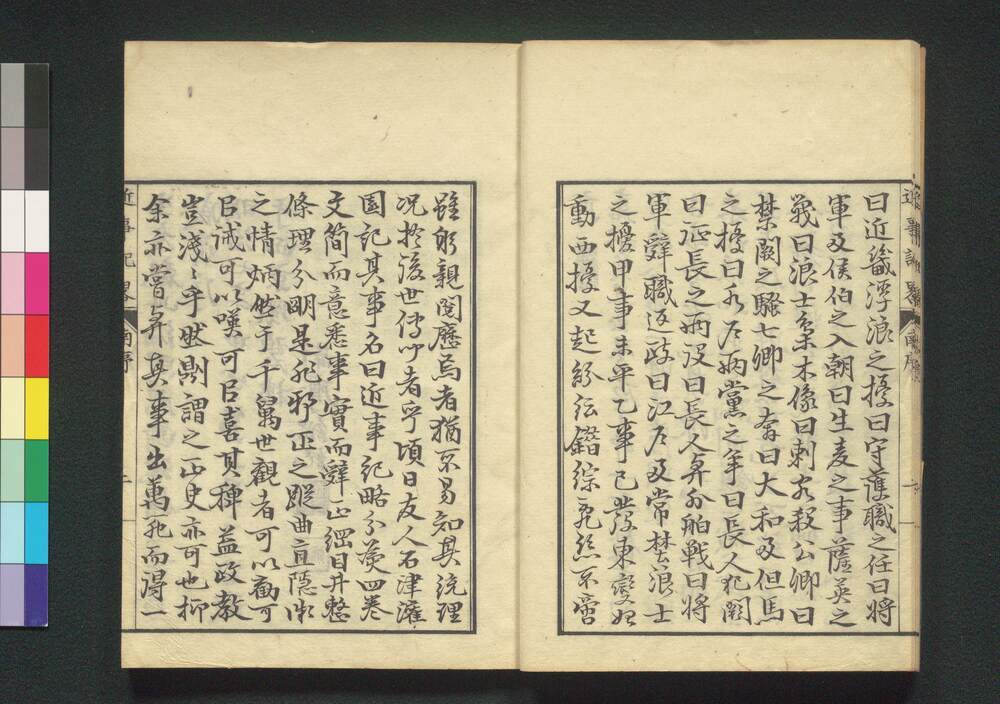 曰近畿浮浪之擾曰守護職之任曰将
軍及侯伯之入朝曰生麦之事薩英之
戦曰浪士梟木像曰刺客殺公卿曰
禁闕之騒七卿之奔曰大和及但馬
之擾曰水戸両党之争曰長人犯闕
曰征長之両役曰長人與外舶戦曰将
軍辞職返政曰江戸及常楚浪士
之擾甲事未平乙事已発東変始
動西擾又起紛紜錯綜乱絲不啻
雖躬親閲歴焉者猶不易知其統理
况於後世傳聞者乎頃日友人石津灌
園記其事名曰近事紀略分為四巻
文簡而意悉事實而辞正綱目井整
條理分明是非邪正之蹤曲直隠微
之情炳然于千萬世観者可以勧可
㠯誡可以嘆可㠯喜其裨益政教
豈浅〻乎哉則謂之正史亦可也抑
余亦嘗與其事出萬死而得一
近事紀略